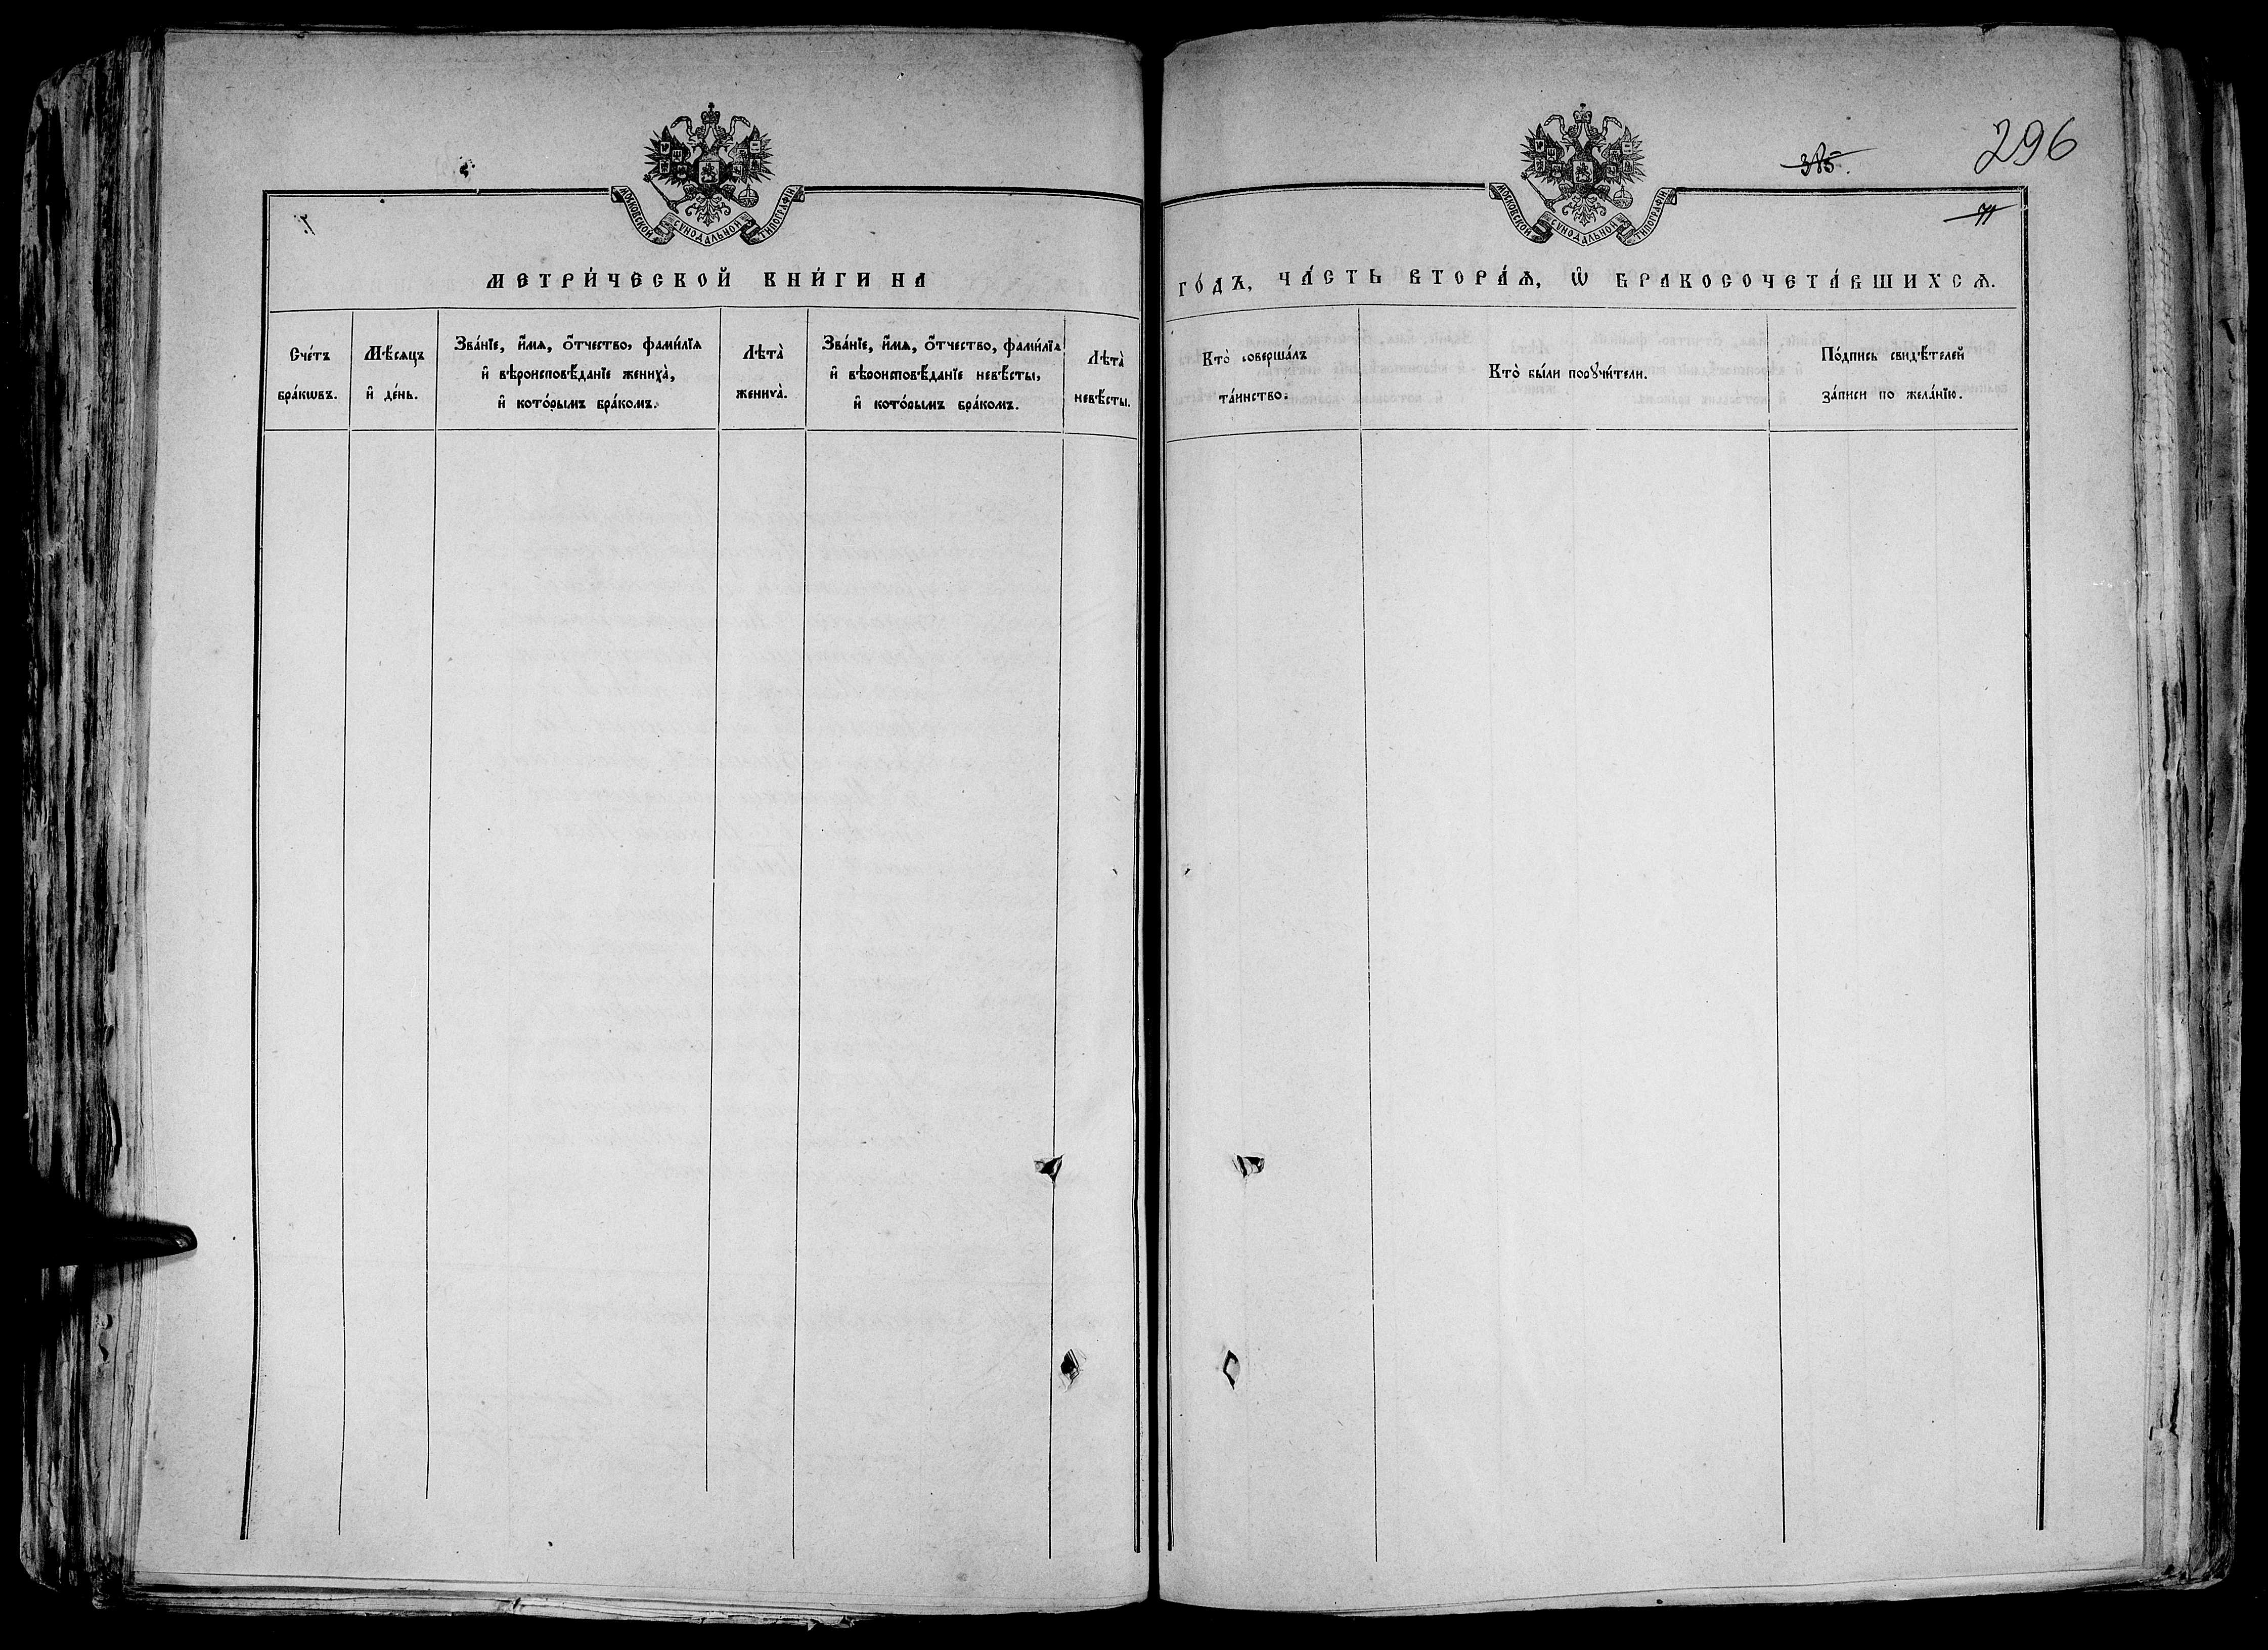 МОСКОВСКОЙ СѴНОДАЛЬНОЙ ТИПОГРАФІИ
МЕТРИ́ЧЕСКОЙ КНИ́ГИ НА
Сче́тъ
бра́кѡвъ.
Мѣ́сѧцъ
и҆ де́нь.
Зва́нїе, и҆́мѧ, ѻ҆́тчество, фами́лїѧ
и҆ вѣроисповѣ́данїе женихà,
и҆ кото́рымъ бра́комъ.
Лѣ́та
женихà.
Зва́нїе, и҆́мѧ, ѻ҆́тчество, фами́лїѧ
и҆ вѣроисповѣ́данїе невѣ́сты,
и҆ кото́рымъ бра́комъ.
Лѣта̀
невѣ́сты.
296
МОСКОВСКОЙ СѴНОДАЛЬНОЙ ТИПОГРАФІИ
ГО́ДЪ, ЧА́СТЬ ВТОРА́Ѧ, Ѽ БРАКОСОЧЕТА́ВШИХСѦ.
Кто̀ совершáлъ
та́инство.
Кто̀ бы́ли порꙋчи́тели.
По́дпись свидѣ́телей
за́писи по жела́нїю.